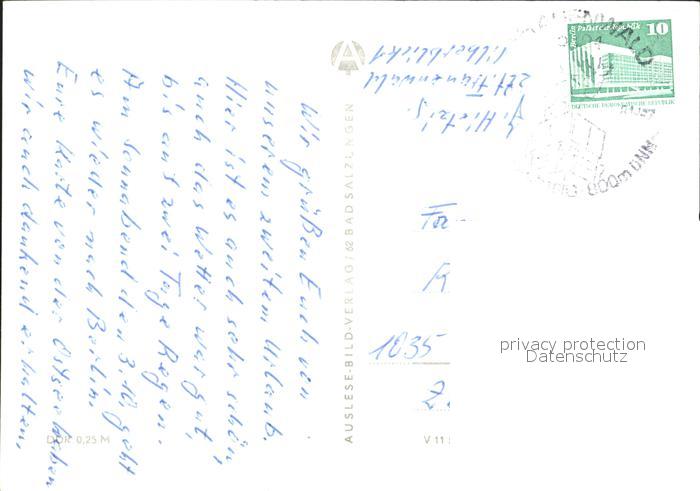 Wir grüßen Euch von
unserem zweiten Urlaub.
Hier ist es auch sehr schön,
auch das Wetter war gut,
bis auf zwei Tage Regen.
Am Sonnabend den 3.10. geht
es wieder nach Berlin.
Eure Karte von der Ostsee haben
wir auch dankend erhalten.
DDR 0,25 M
AUSLESE-BILD-VERLAG / 62 BAD SALZUNGEN
V 11
zzt. Frauenwald
1035
privacy protection
Datenschutz
Berlin, Palast der Republik 10
DEUTSCHE DEMOKRATISCHE REPUBLIK
800m üNN